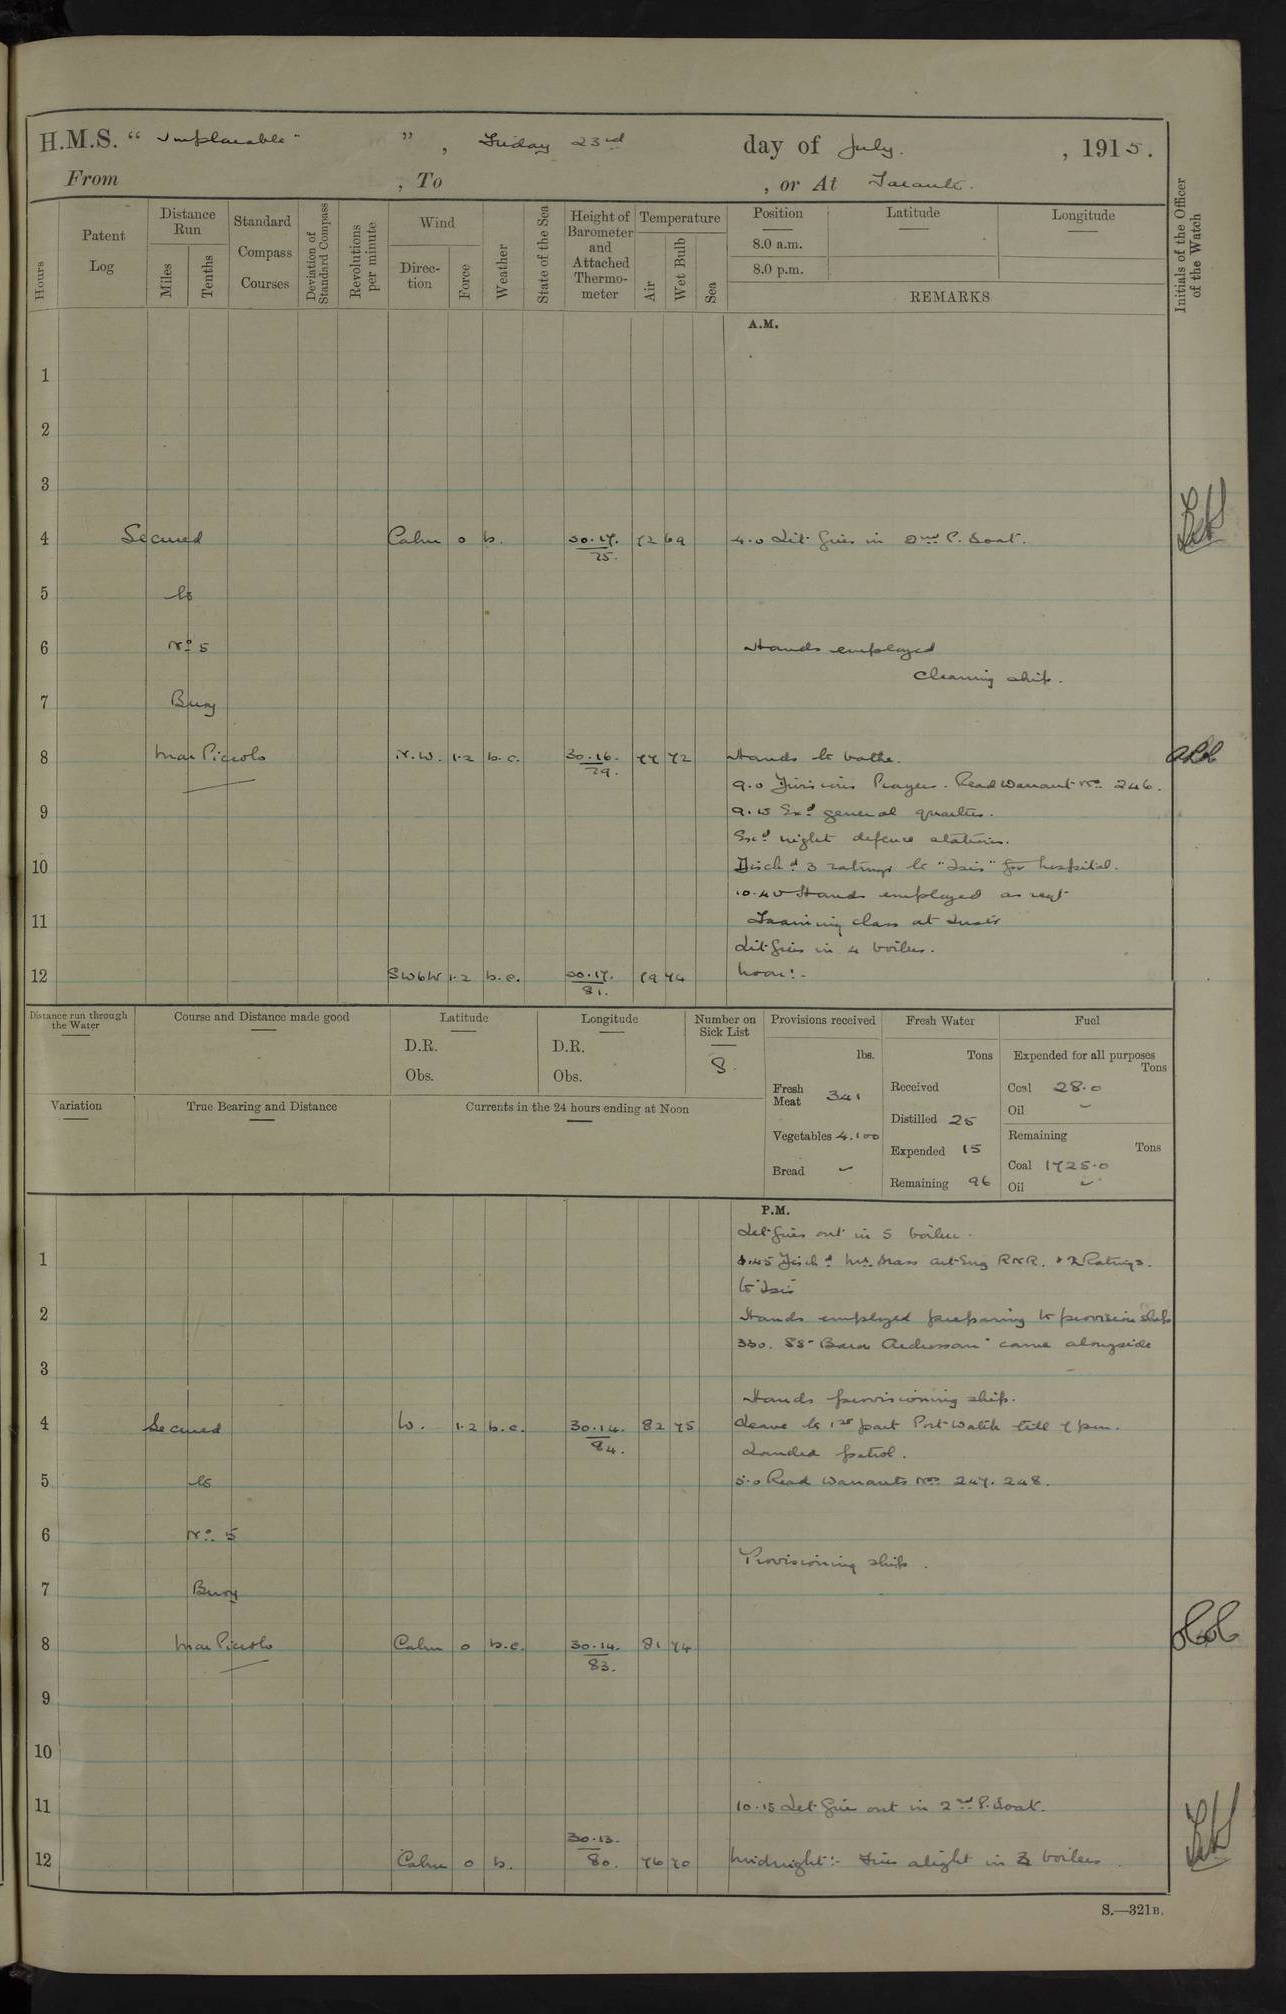 H.M.S. “ Implacable ” , Friday 23rd day of July. , 1915.
From , To , or At Taranto.
Hours
Patent Log
Distance Run
Miles
Tenths
Standard Compass Courses
Deviation of Standard Compass
Revolutions per minute
Wind
Direction
Force
Weather
State of the Sea
Height of Barometer and Attached Thermometer
Temperature
Air
Wet Bulb
Sea
Position
8.0 a.m.
8.0 p.m.
Latitude
Longitude
REMARKS
Initials of the Officer of the Watch
A.M.
1
2
3
4 Secured Calm 0 b. 30.17. 75. 72 69 4.0 Lit fires in 2nd P. boat.
5 to
6 No 5 Hands employed
cleaning ship.
7 Buoy
8 Mar Piccolo N.W. 1.2 b.c. 30.16. 79. 77 72 Hands to bathe.
9.0 Divisions Prayers. Read Warrant No 246.
9 9.15 Exd general quarters.
Exd night defence stations.
10 Dischd 3 ratings to "Isis" for hospital.
10.40 Hands employed as reqt
11 Training class at Instr
Lit fires in 4 boilers.
12 SWbW 1.2 b.c. 30.17. 81. 79 74 Noon:-
Distance run through the Water
Course and Distance made good
Latitude
D.R.
Obs.
Longitude
D.R.
Obs.
Number on Sick List
8
Provisions received
lbs.
Fresh Meat 341
Vegetables 4.100
Bread
Fresh Water
Tons
Received
Distilled 25
Expended 15
Remaining 96
Fuel
Expended for all purposes
Tons
Coal 28.0
Oil
Remaining
Tons
Coal 1725.0
Oil
Variation
True Bearing and Distance
Currents in the 24 hours ending at Noon
P.M.
Let fires out in 5 boilers.
1 1.45 Dischd Mr. Art. Eng R.N.R. & 2 Ratings.
to "Isis"
2 Hands employed preparing to provision ship
330. SS "Baron Ardrossan" came alongside
3
Hands provisioning ship.
4 Secured W. 1.2 b.c. 30.14. 84. 82 75 Leave to 1st part Port Watch till 7 pm.
Landed patrol.
5 to 5.0 Read Warrants Nos 247. 248.
6 No 5
Provisioning ship.
7 Buoy
8 Mar Piccolo Calm 0 b.c. 30.14. 83. 81 74
9
10
11 10.15 Let fire out in 2nd P. Boat.
12 Calm 0 b. 30.13. 80. 76 70 Midnight:- Fires alight in 3 boilers.
S.—321B.